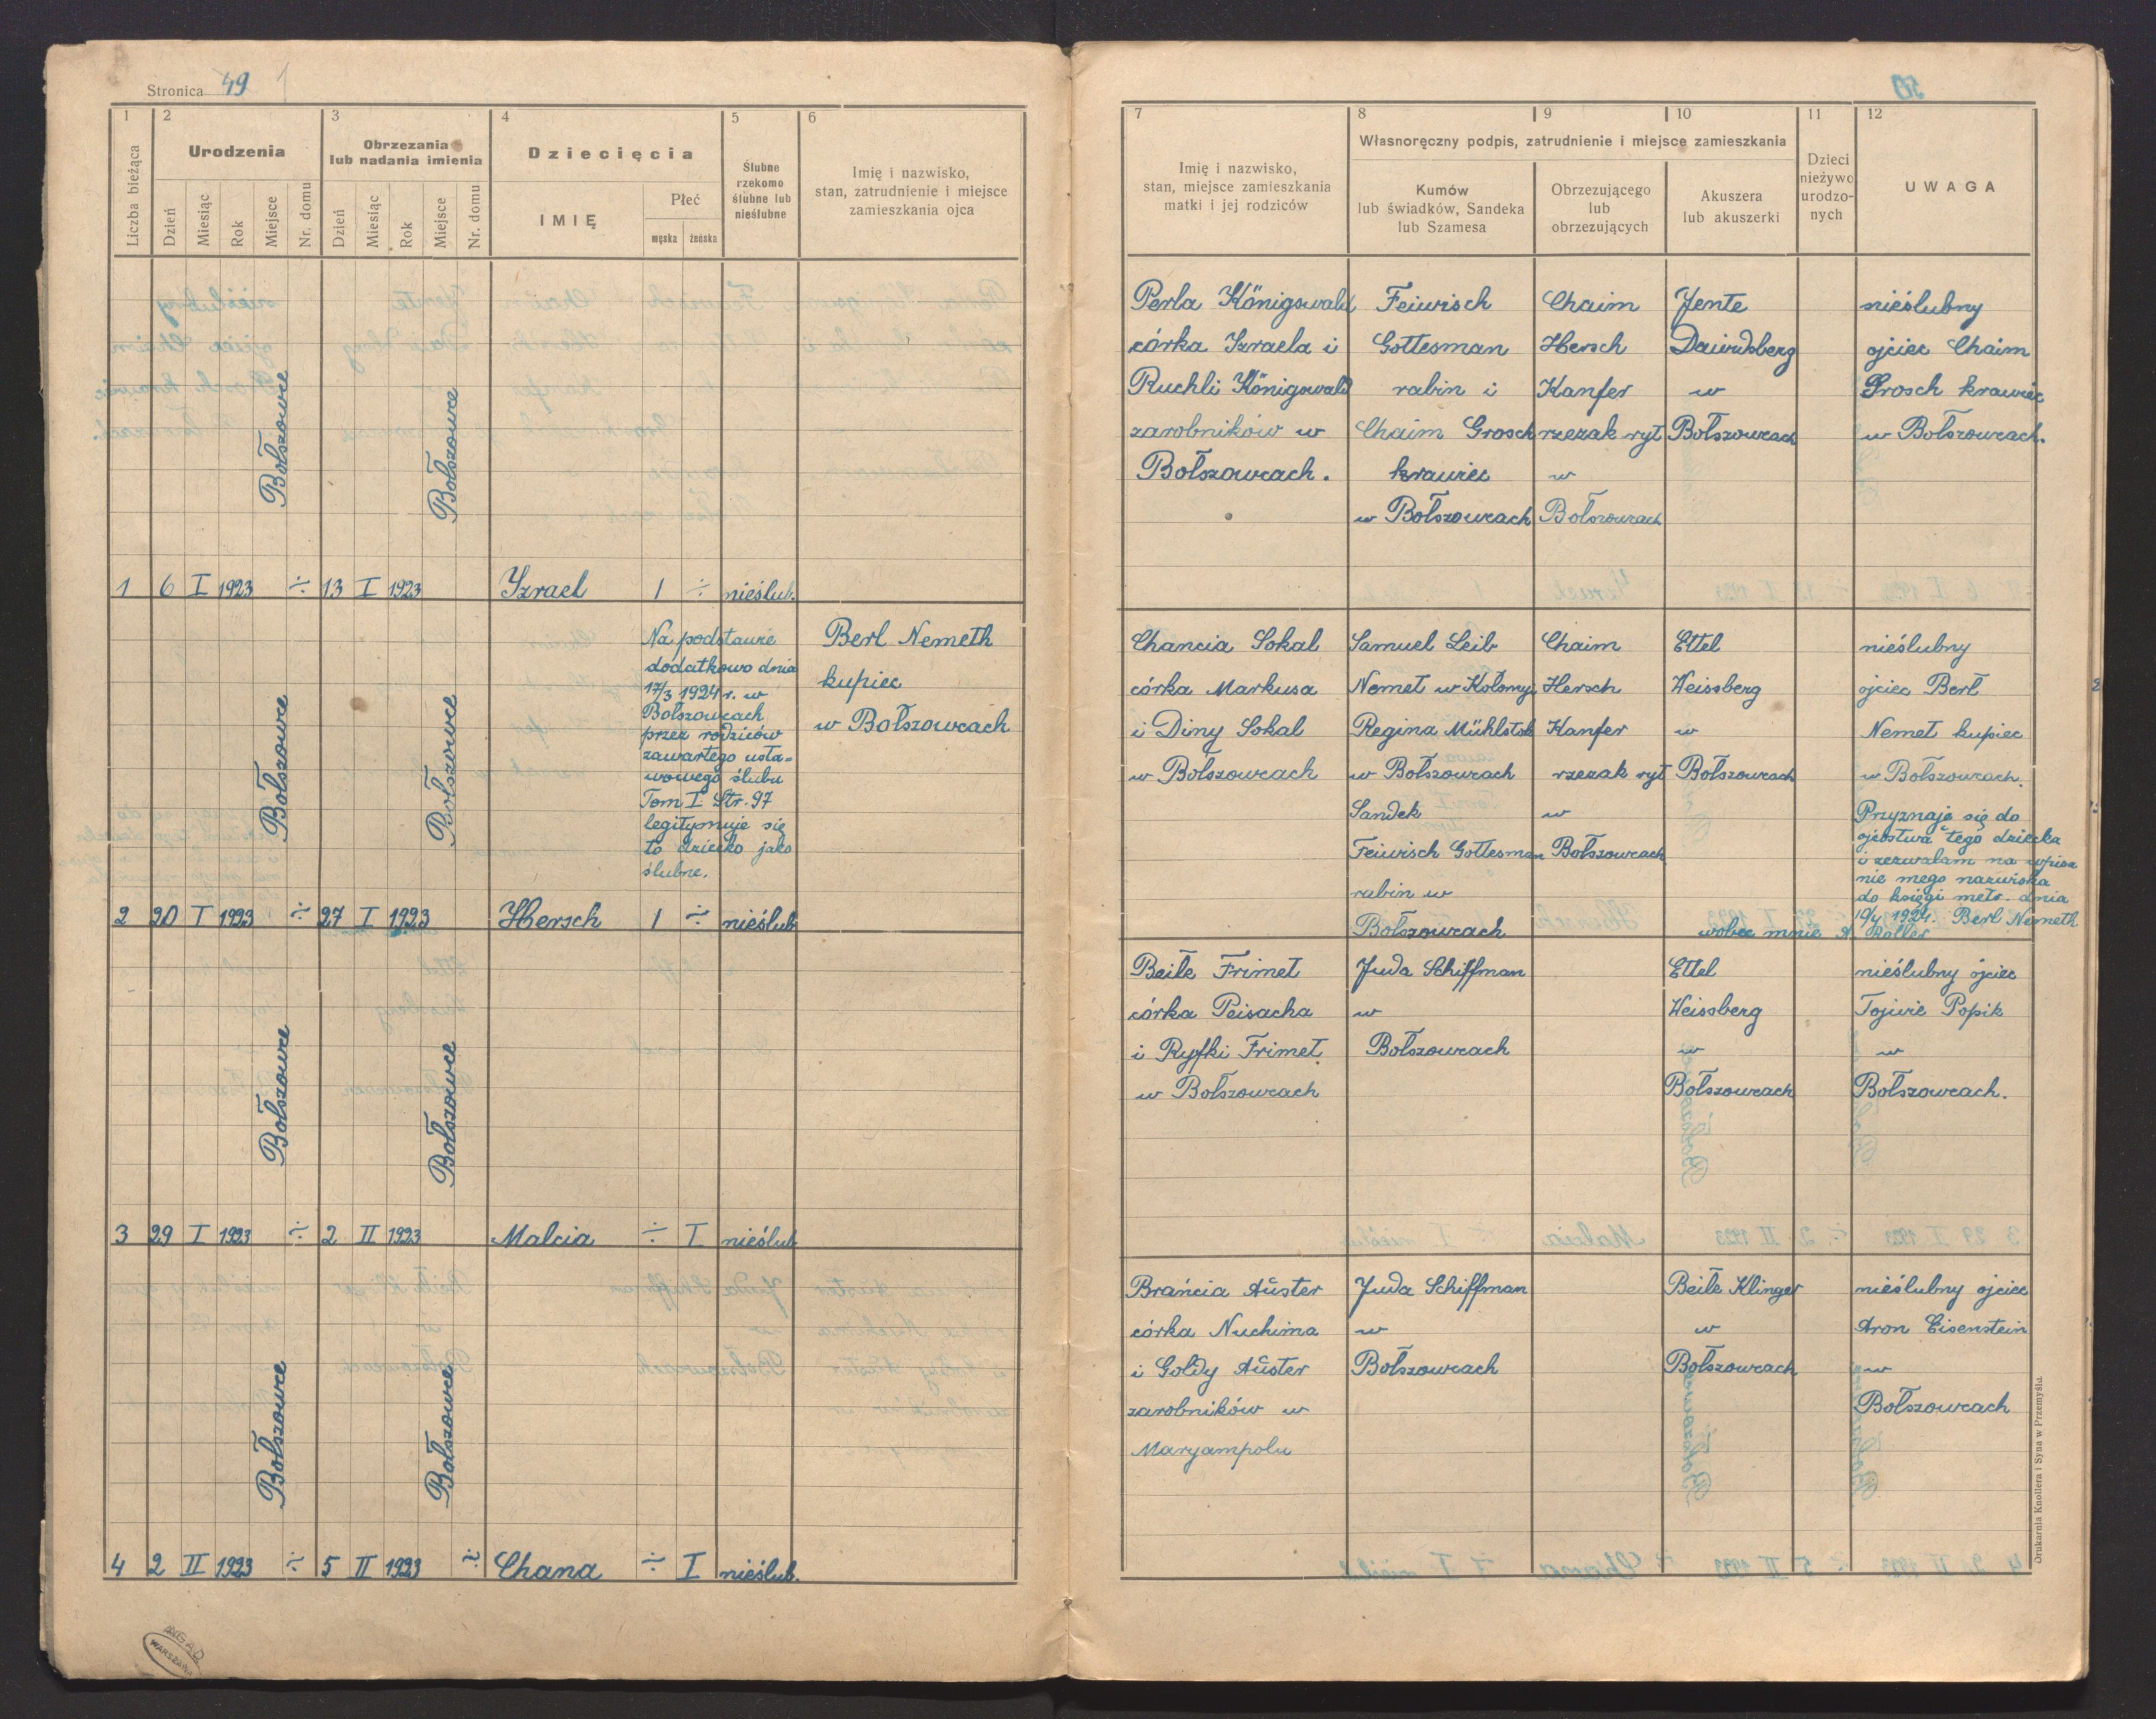 Stronica 49
1
2
3
4
5
6
Liczba bieżąca
Urodzenia
Obrzezania
lub nadania imienia
Dziecięcia
Ślubne
rzekomo
ślubne lub
nieślubne
Imię i nazwisko,
stan, zatrudnienie i miejsce
zamieszkania ojca
Dzień
Miesiąc
Rok
Miejsce
Nr. domu
Dzień
Miesiąc
Rok
Miejsce
Nr. domu
IMIĘ
Płeć
męska
żeńska
Bołszowce
Bołszowce
1 6 I 1923 ÷ 13 I 1923 Izrael 1 ÷ nieślub.
Na podstawie
dodatkowo dnia
17/3 1924 r. w
Bołszowcach
przez rodziców
zawartego usta-
wowego ślubu
Tom I Str. 97
legitymuje się
to dziecko jako
ślubne.
Berl Nemeth
kupiec
w Bołszowcach
Bołszowce
Bołszowce
2 20 I 1923 ÷ 27 I 1923 Hersch 1 ÷ nieślub
Bołszowce
Bołszowce
3 29 I 1923 ÷ 2 II 1923 Malcia ÷ I nieślub
Bołszowce
Bołszowce
4 2 II 1923 ÷ 5 II 1923 ÷ Chana ÷ I nieślub.
50
7
8
9
10
11
12
Imię i nazwisko,
stan, miejsce zamieszkania
matki i jej rodziców
Własnoręczny podpis, zatrudnienie i miejsce zamieszkania
Kumów
lub świadków, Sandeka
lub Szamesa
Obrzezującego
lub
obrzezujących
Akuszera
lub akuszerki
Dzieci
nieżywo
urodzo-
nych
UWAGA
Perla Königswald
córka Izraela i
Ruchli Königswald
zarobników w
Bołszowcach.
Feiwisch
Gottesman
rabin i
Chaim Grosch
krawiec
w Bołszowcach
Chaim
Hersch
Kanfer
rzezak ryt
w
Bołszowcach
Jente
Dawidsberg
w
Bołszowcach
nieślubny
ojciec Chaim
Grosch krawiec
w Bołszowcach.
Chancia Sokal
córka Markusa
i Diny Sokal
w Bołszowcach
Samuel Leib
Nemet w Kołomyi
Regina Mühlstok
w Bołszowcach
Sandek
Feiwisch Gottesman
rabin w
Bołszowcach
Chaim
Hersch
Kanfer
rzezak ryt
w
Bołszowcach
Ettel
Weissberg
w
Bołszowcach
nieślubny
ojciec Berl
Nemet kupiec
w Bołszowcach.
Przyznaję się do
ojcostwa tego dziecka
i zezwalam na wpisa
nie mego nazwiska
do księgi metr. dnia
10/4 1924. Berl Nemeth
wobec mnie A. Roller
Beile Frimet
córka Peisacha
i Ryfki Frimet
w Bołszowcach
Juda Schiffman
w
Bołszowcach
Ettel
Weissberg
w
Bołszowcach
nieślubny ojciec
Tojwie Popik
w
Bołszowcach.
Brańcia Auster
córka Nuchima
i Goldy Auster
zarobników w
Maryampolu
Juda Schiffman
w
Bołszowcach
Beile Klinger
w
Bołszowcach
nieślubny ojciec
Aron Eisenstein
w
Bołszowcach
Drukarnia Knollera i Syna w Przemyślu.
AGAD
WARSZAWA